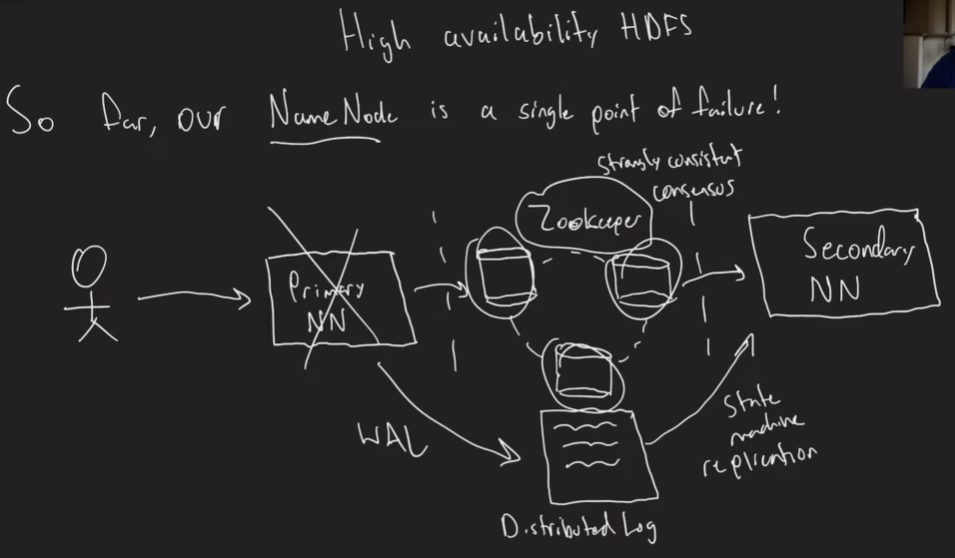 High availability HDFS
So far, our NameNode is a single point of failure!
Strongly consistent
consensus
Zookeeper
Primary
NN
Secondary
NN
WAL
State
machine
replication
Distributed Log